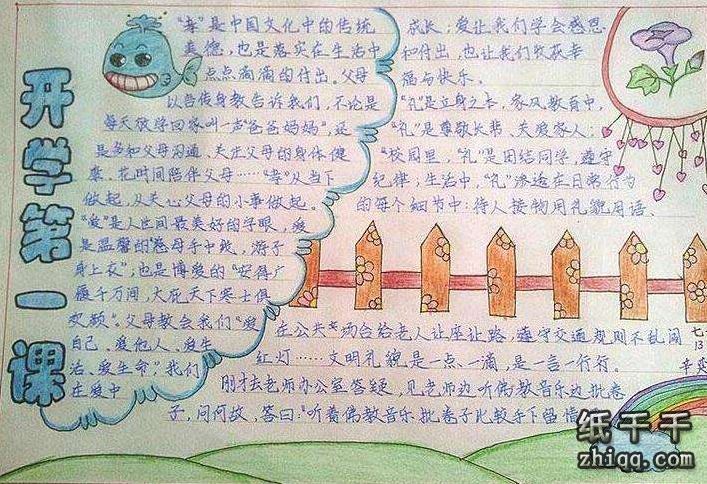 开学第一课
“孝”是中国文化中的传统
美德，也是落实在生活中
点点滴滴的付出。父母
以言传身教告诉我们，不论是
每天放学回家叫一声“爸爸妈妈”，还
是多和父母沟通、关注父母的身体健
康、花时间陪伴父母……“孝”从当下
做起，从关心父母的小事做起。
“爱”是人世间最美好的字眼，爱
是温馨的“慈母手中线，游子
身上衣”，也是博爱的“安得广
厦千万间，大庇天下寒士俱
欢颜”。父母教会我们“爱
自己、爱他人、爱生
活、爱生命”，我们
在爱中
成长；爱让我们学会感恩
和付出，也让我们收获幸
福与快乐。
“礼”是立身之本，家风教育中，
“礼”是尊敬长辈、关爱家人；
“校园里，“礼”是团结同学，遵守
纪律；生活中，“礼”渗透在日常行为
的每个细节中：待人接物用礼貌用语、
在公共场合给老人让座让路，遵守交通规则不乱闯
红灯……文明礼貌是一点一滴，是一言一行。
刚才去老师办公室答疑，见老师边听佛教音乐边批卷
子，问何故，答曰：“听着佛教音乐批卷子比较手下留情
七
13
纸千千
zhiqq.com